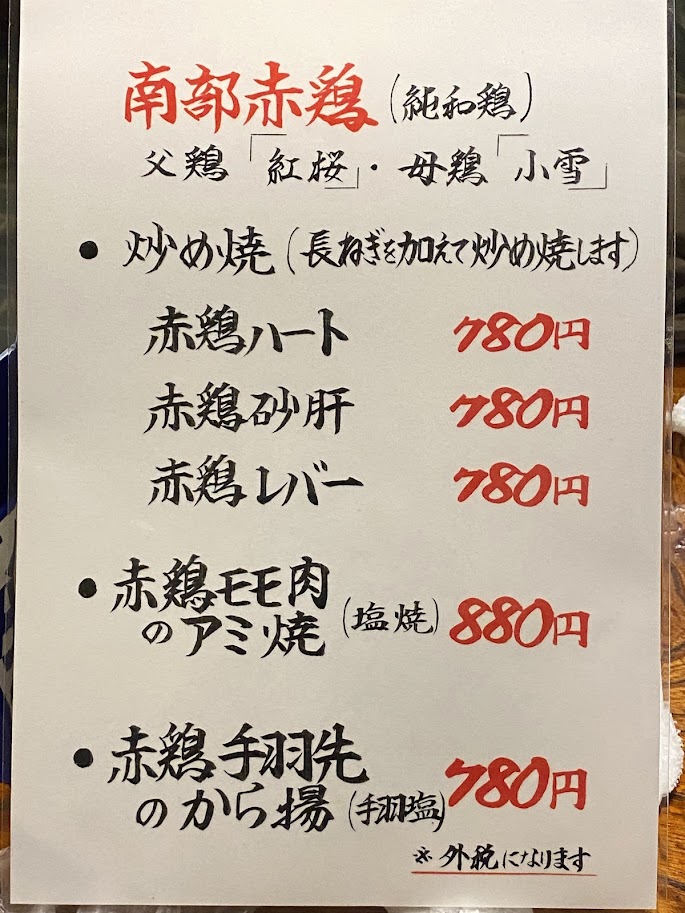 南部赤鶏(純和鶏)
父鶏「紅桜」・母鶏「小雪」
● 炒め焼(長ねぎを加えて炒め焼します)
赤鶏ハート 780円
赤鶏砂肝 780円
赤鶏レバー 780円
● 赤鶏モモ肉
のアミ焼(塩焼) 880円
● 赤鶏手羽先
のから揚(手羽塩) 780円
※外税になります